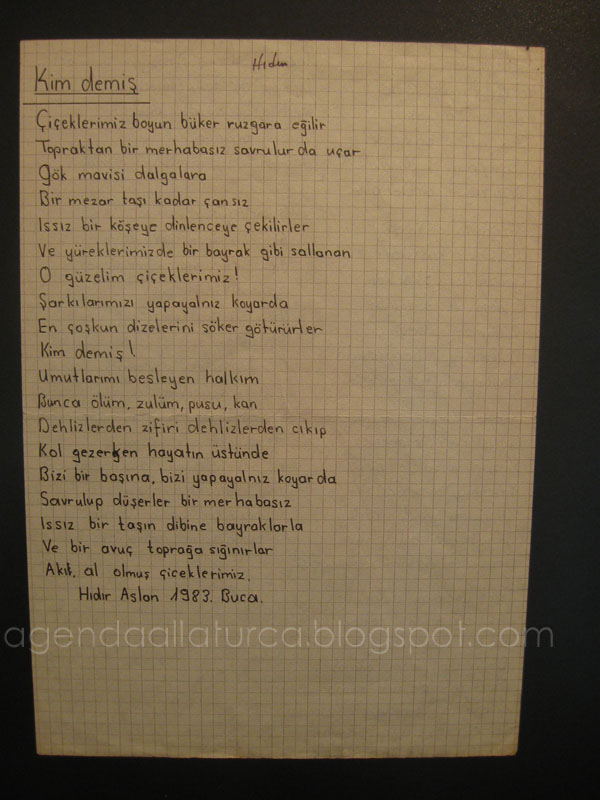 Hıdır
Kim demiş
Çiçeklerimiz boyun büker ruzgara eğilir
Topraktan bir merhabasız savrulur da uçar
Gök mavisi dalgalara
Bir mezar taşı kadar çansız
Issız bir köşeye dinlenceye çekilirler
Ve yüreklerimizde bir bayrak gibi sallanan
O güzelim çiçeklerimiz!
Şarkılarımızı yapayalnız koyarda
En çoşkun dizelerini söker götürürler
Kim demiş!
Umutlarımı besleyen halkım
Bunca ölüm, zulüm, pusu, kan
Dehlizlerden zifiri dehlizlerden cıkıp
Kol gezerken hayatın üstünde
Bizi bir başına, bizi yapayalnız koyar da
Savrulup düşerler bir merhabasız
Issız bir taşın dibine bayraklarla
Ve bir avuç toprağa sığınırlar
Akıt, al olmuş çiceklerimiz.
Hıdır Aslan 1983. Buca.
agendaallaturca.blogspot.com